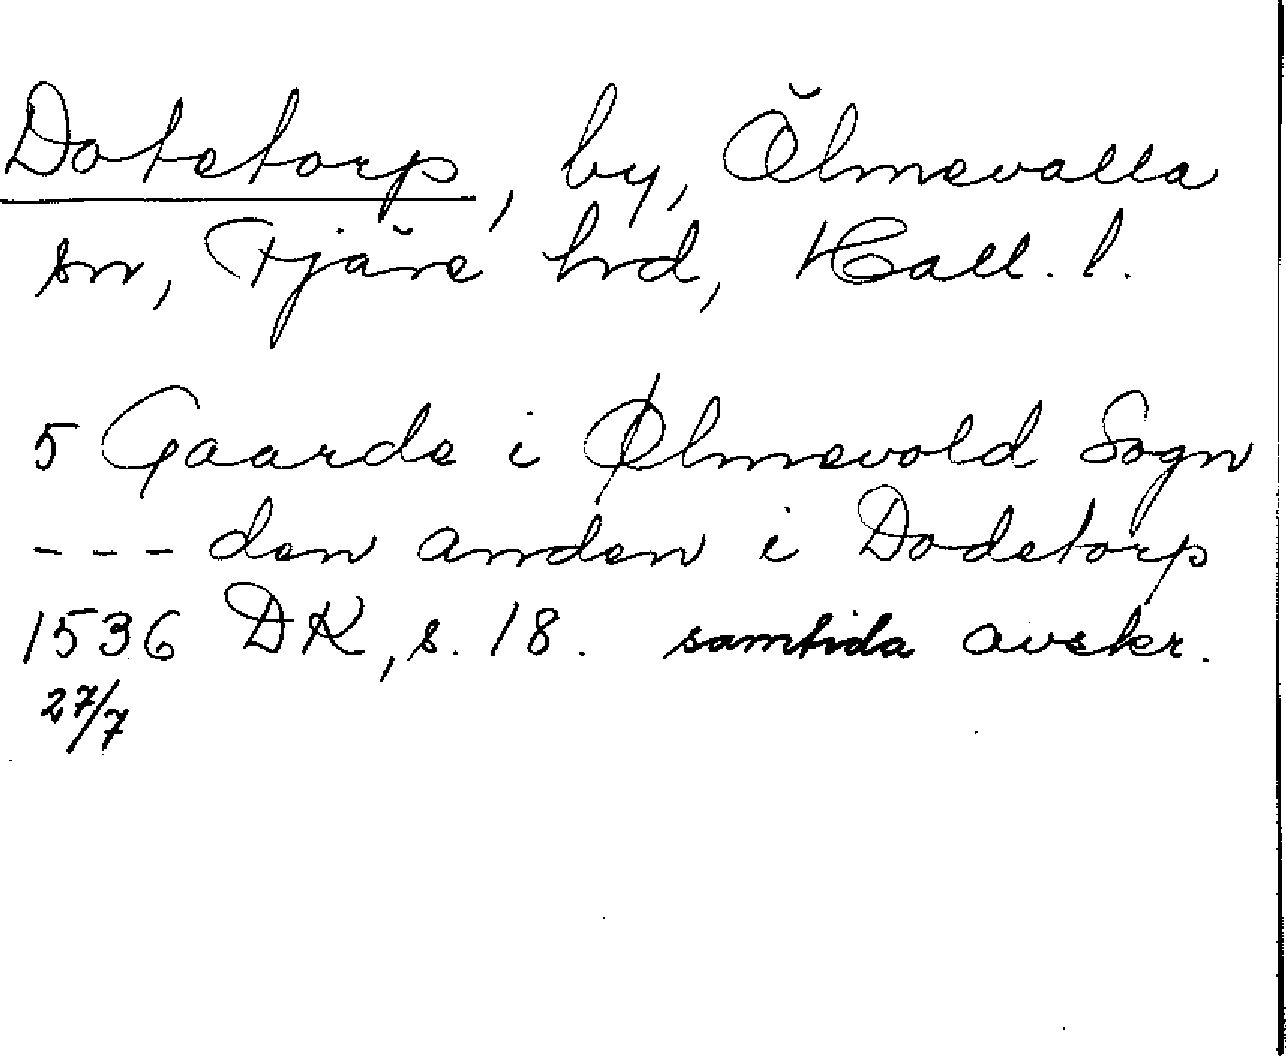 Dotetorp, by, Ölmevalla
sn, Fjäre hrd, Hall. l.
5 Gaarde i Ølmevold Sogn
--- den anden i Dodetorp
1536 DK, s. 18. samtida avskr.
27/7